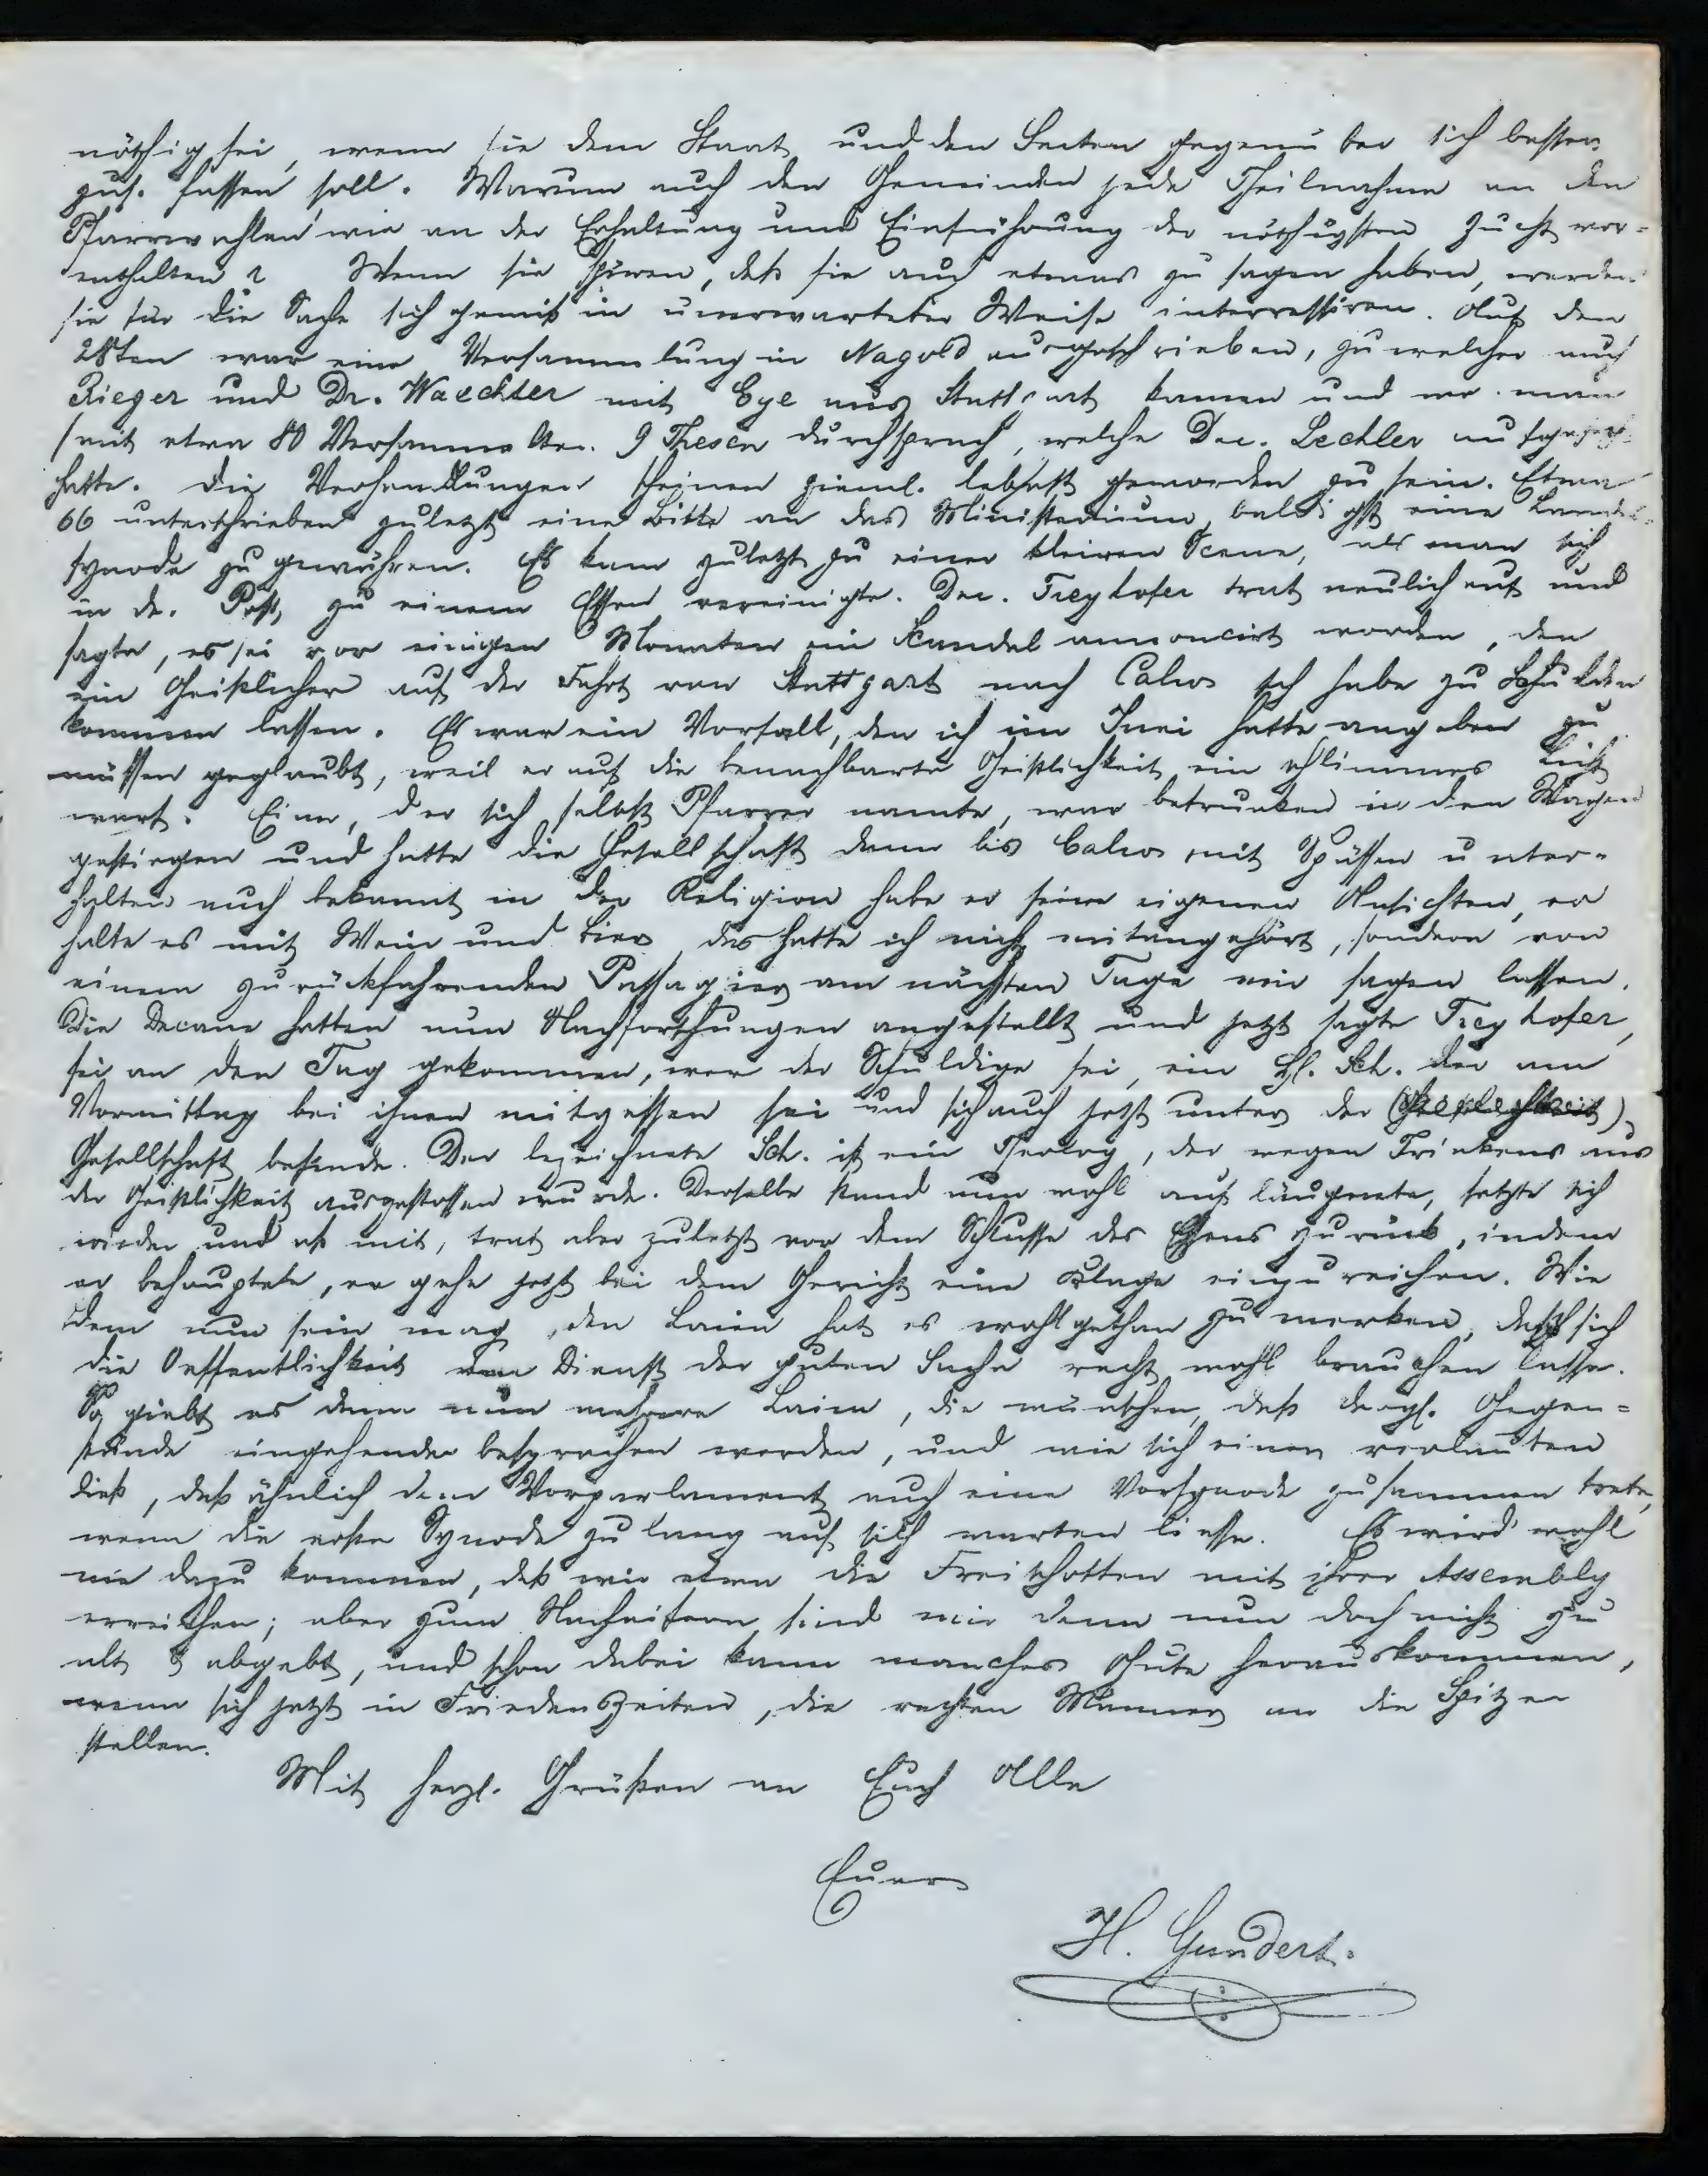 nöthig sei, wenn sie dem Staat und den Secten gegenüber sich besser
zus. fassen soll. Warum auch den Gemeinden jede Theilnahme an den
Pfarrwahlen wie an der Erhaltung und Einführung der nöthigsten Zucht vor-
enthalten? Wenn sie spüren, daß sie auch etwas zu sagen haben, werden
sie für die Sache sich gewiß in unerwarteter Weise interressiren. Auf den
28ten war eine Versammlung in Nagold ausgeschrieben, zu welcher auch
Rieger und Dr. Waechter mit Eye aus Stuttgart kamen und wo man
(mit etwa 80 Versammelten) 9 Thesen durchsprach, welche Dec. Lechler aufgesetzt
hatte. Die Verhandlungen scheinen zieml. lebhaft geworden zu sein. Etwa
66 unterschrieben zuletzt eine Bitte an das Ministerium, baldigst eine Landes-
synode zu gewähren. Es kam zuletzt zu einer kleinen Scene, als man sich
in der Post zu einem Essen vereinigte. Dec. Freyhofer trat neulich auf und
sagte, es sei vor einigen Monaten ein Skandal annoncirt worden, den
ein Geistlicher auf der Fahrt von Stuttgart nach Calw sich habe zu Schulden
kommen lassen. Es war ein Vorfall, den ich im Juni hatte angeben zu
müssen geglaubt, weil er auf die benachbarte Geistlichkeit ein schlimmes Licht
warf. Einer, der sich selbst Pfarrer nannte, war betrunken in den Wagen
gestiegen und hatte die Gesellschaft dann bis Calw mit Spässen unter-
halten auch bekannt in der Religion habe er seine eigenen Ansichten, er
halte es mit Wein und Bier das hatte ich nicht mitangehört, sondern von
einem zurückfahrenden Passagier am nächsten Tage mir sagen lassen.
Die Decane hatten nun Nachforschungen angestellt und jetzt sagte Freyhofer,
sei an den Tag gekommen, wer der Schuldige sei, ein Hl. Sch. der am
Vormittag bei ihnen mitgesessen sei und sich auch jetzt unter der (Geistlichkeit)
Gesellschaft befinde. Der bezeichnete Sch. ist ein Theolog, der wegen Trinkens aus
der Geistlichkeit ausgestossen wurde. Derselbe stand nun wohl auf läugnete, setzte sich
wieder und aß mit, trat aber zuletzt vor dem Schlusse des Essens zurück, indem
er behauptete, er gehe jetzt bei dem Gericht eine Klage einzureichen. Wie
dem nun sein mag, den Laien hat es wohlgethan zu merken, daß sich
die Oeffentlichkeit zum Dienst der guten Sache recht wohl brauchen lasse.
So giebt es denn nun mehrere Laien, die wünschen, daß dergl. Gegen-
stände eingehender besprochen werden, und wie sich einer verlauten
ließ, daß ähnlich dem Vorparlament auch eine Vorsynode zusammen trete,
wenn die erste Synode zu lang auf sich warten liesse. Es wird wohl
nie dazu kommen, daß wir etwa die Freischotten mit ihrer Assembly
erreichen; aber zum Nacheifern sind wir denn nun doch nicht zu
alt & abgelebt, und schon dabei kann manches Gute herauskommen,
wenn sich jetzt in Friedenszeiten, die rechten Männer an die Spitze
stellen.
Mit herzl. Grüßen an Euch Alle
Euer
H. Gundert.